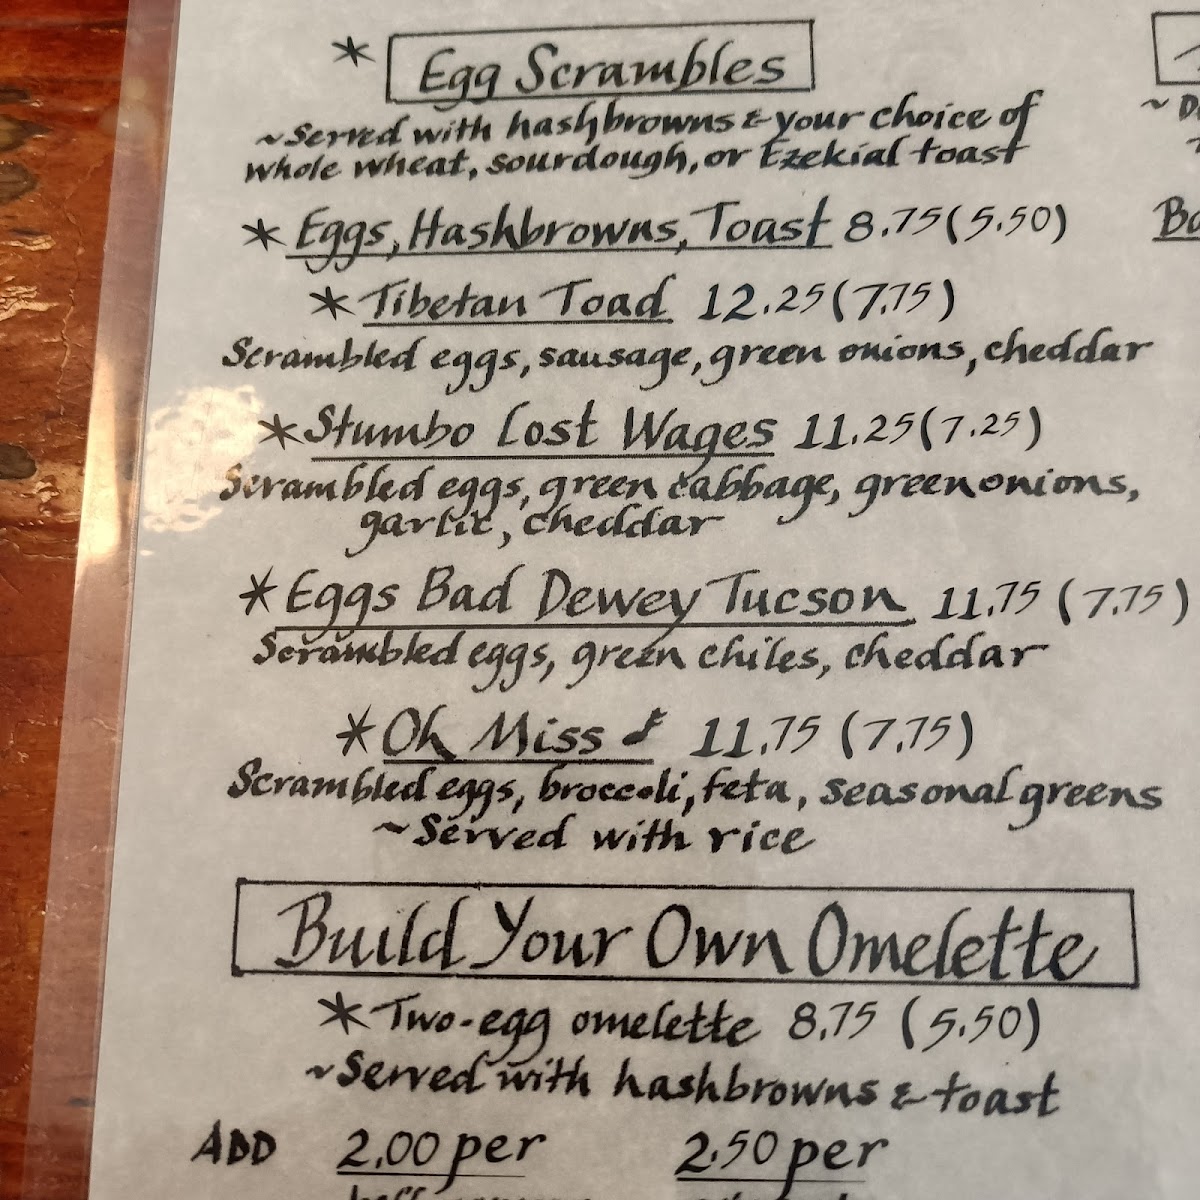 * Egg Scrambles
~Served with hashbrowns & your choice of
whole wheat, sourdough, or Ezekial toast
* Eggs, Hashbrowns, Toast 8.75 (5.50)
* Tibetan Toad 12.25 (7.75)
Scrambled eggs, sausage, green onions, cheddar
* Stumbo Lost Wages 11.25 (7.25)
Scrambled eggs, green cabbage, green onions,
garlic, cheddar
* Eggs Bad Dewey Tucson 11.75 (7.75)
Scrambled eggs, green chiles, cheddar
* Oh Miss ♪ 11.75 (7.75)
Scrambled eggs, broccoli, feta, seasonal greens
~Served with rice
Build Your Own Omelette
* Two-egg omelette 8.75 (5.50)
~Served with hashbrowns & toast
ADD 2.00 per 2.50 per